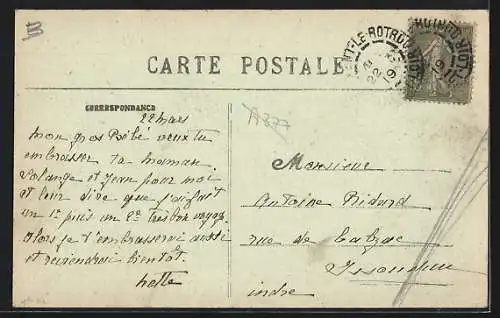 CARTE POSTALE
NT-LE-ROTROU
22
19
CORRESPONDANCE
22 mars
mon gros Bébé veux tu
embrasser ta maman
Solange et pour moi
et leur dire que j'ai fait
un 1e puis un 2e tres bon voyage
Alors je t'embrasserai aussi
et reviendrai bientôt
Monsieur
Antoine Ridard
rue de
Issoudun
indre